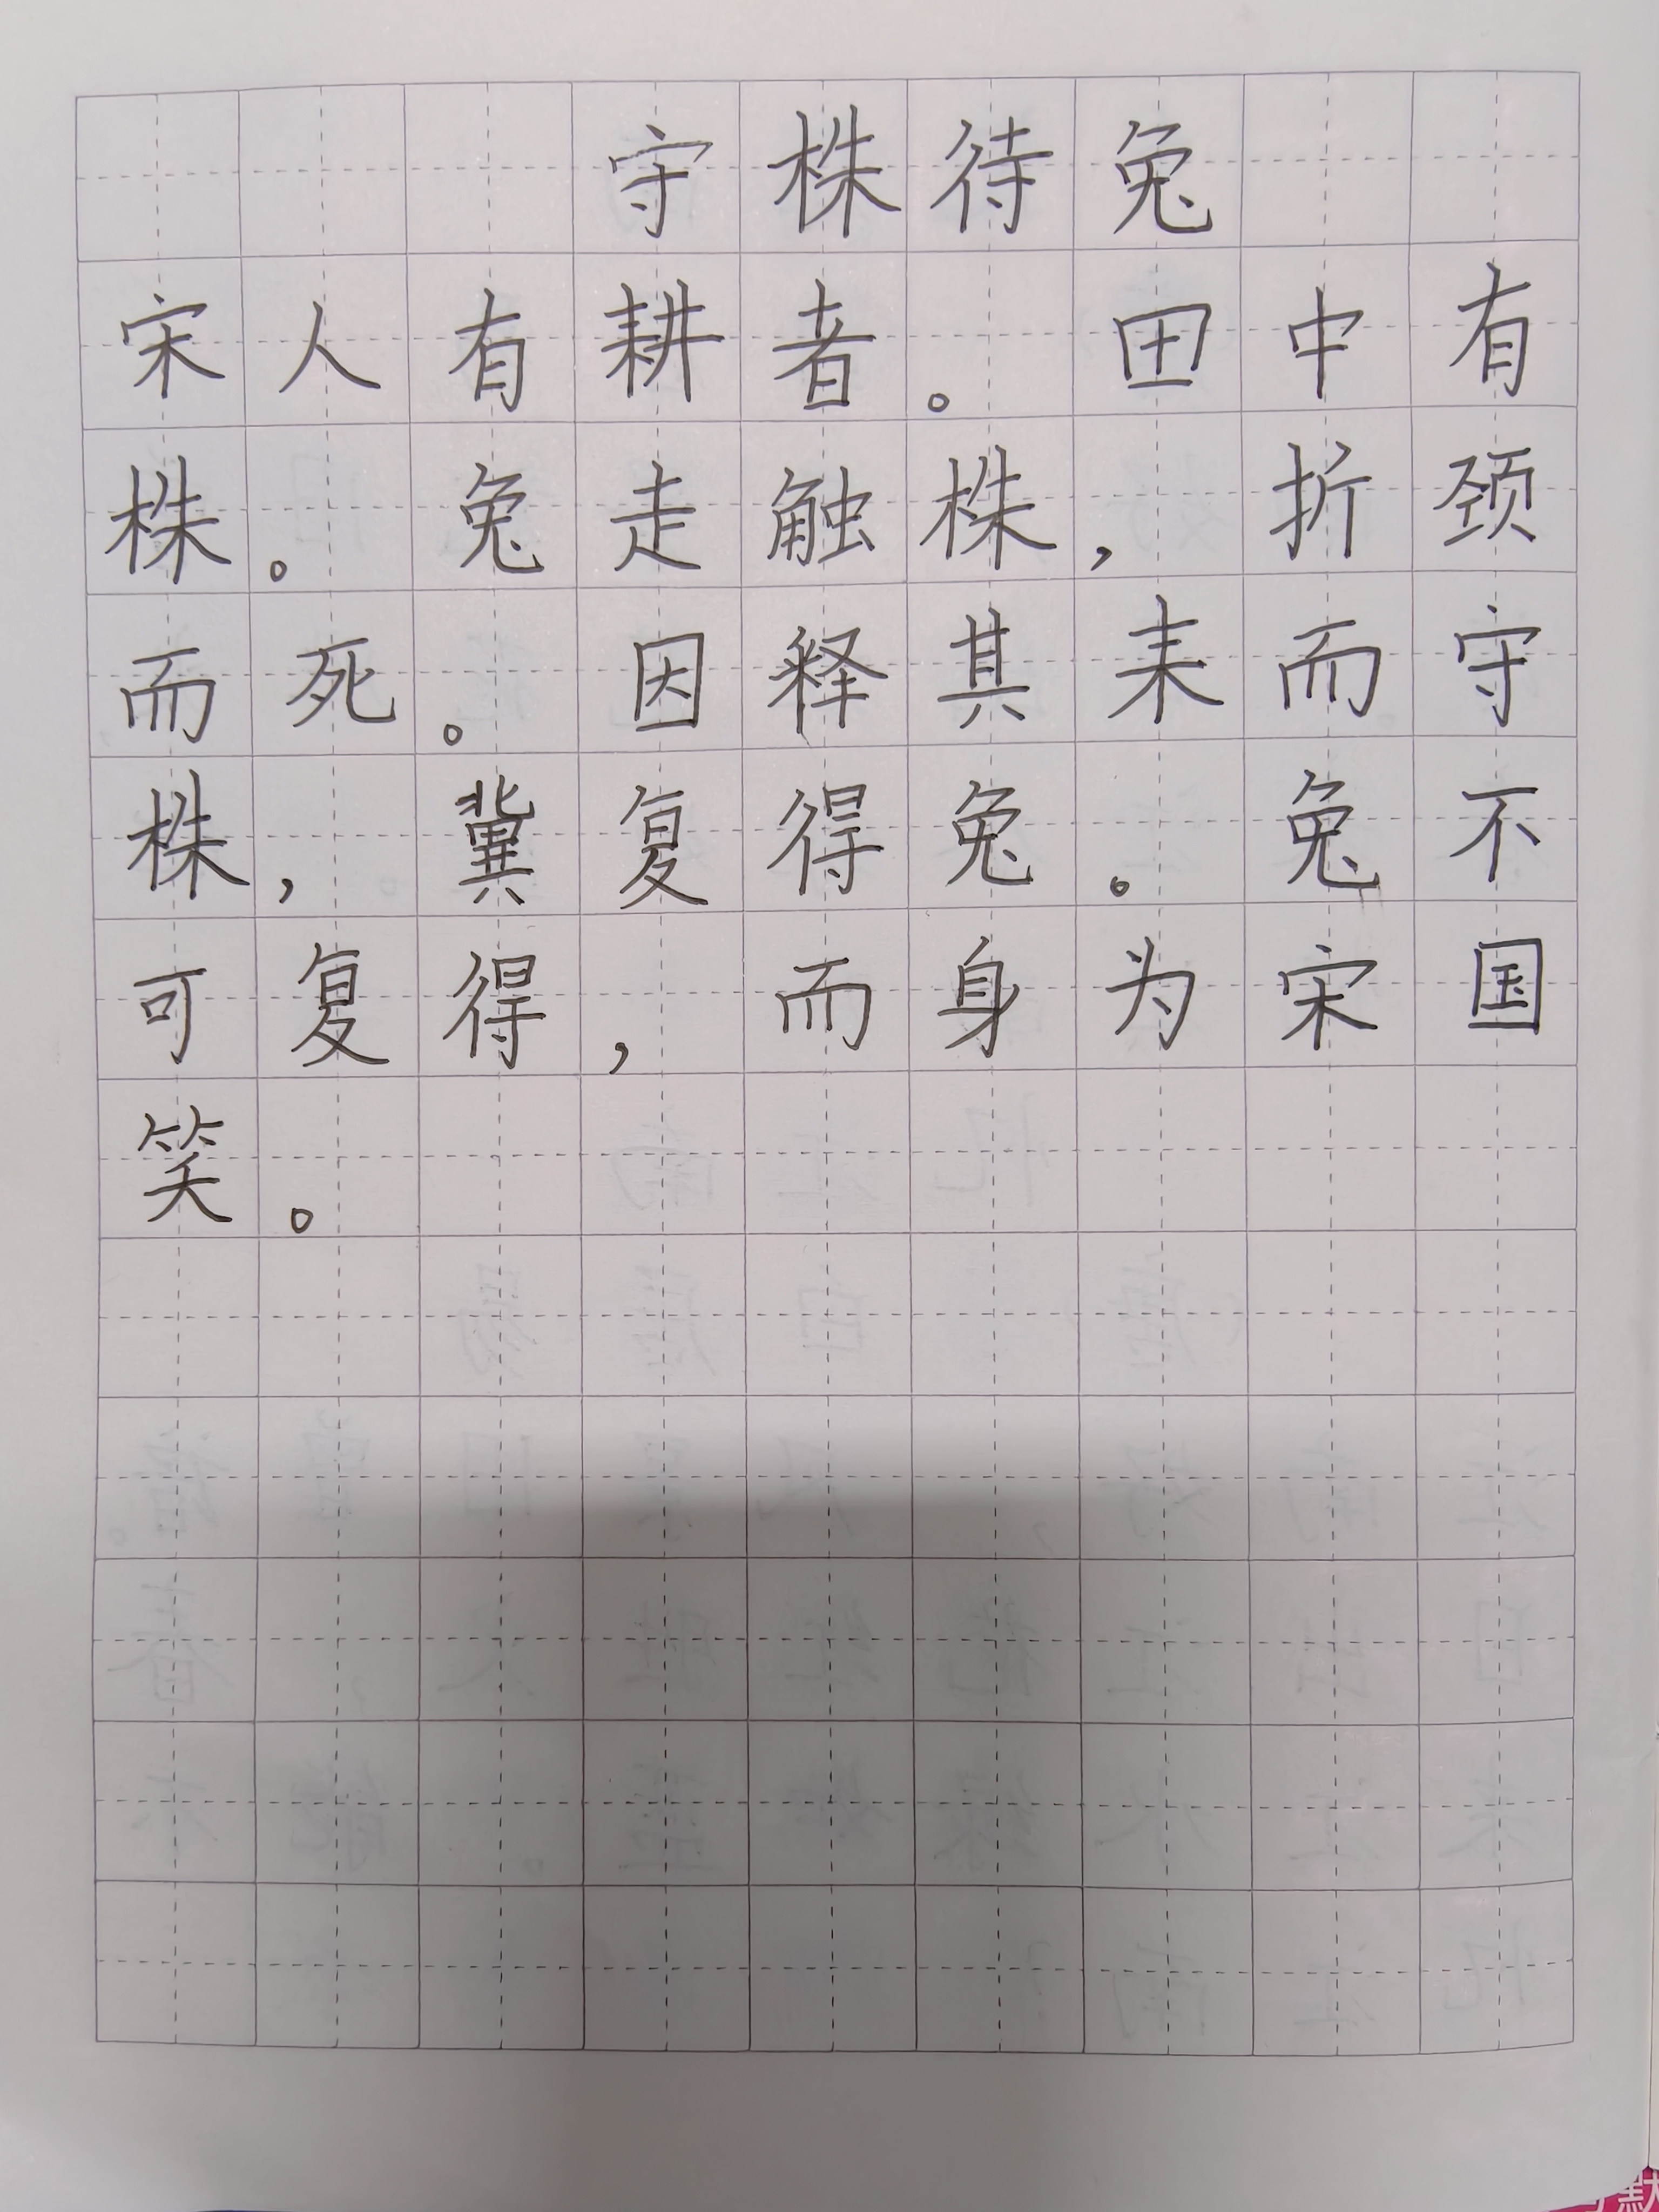 守株待兔
宋人有耕者。田中有
株。兔走触株，折颈
而死。因释其耒而守
株，冀复得兔。兔不
可复得，而身为宋国
笑。
默